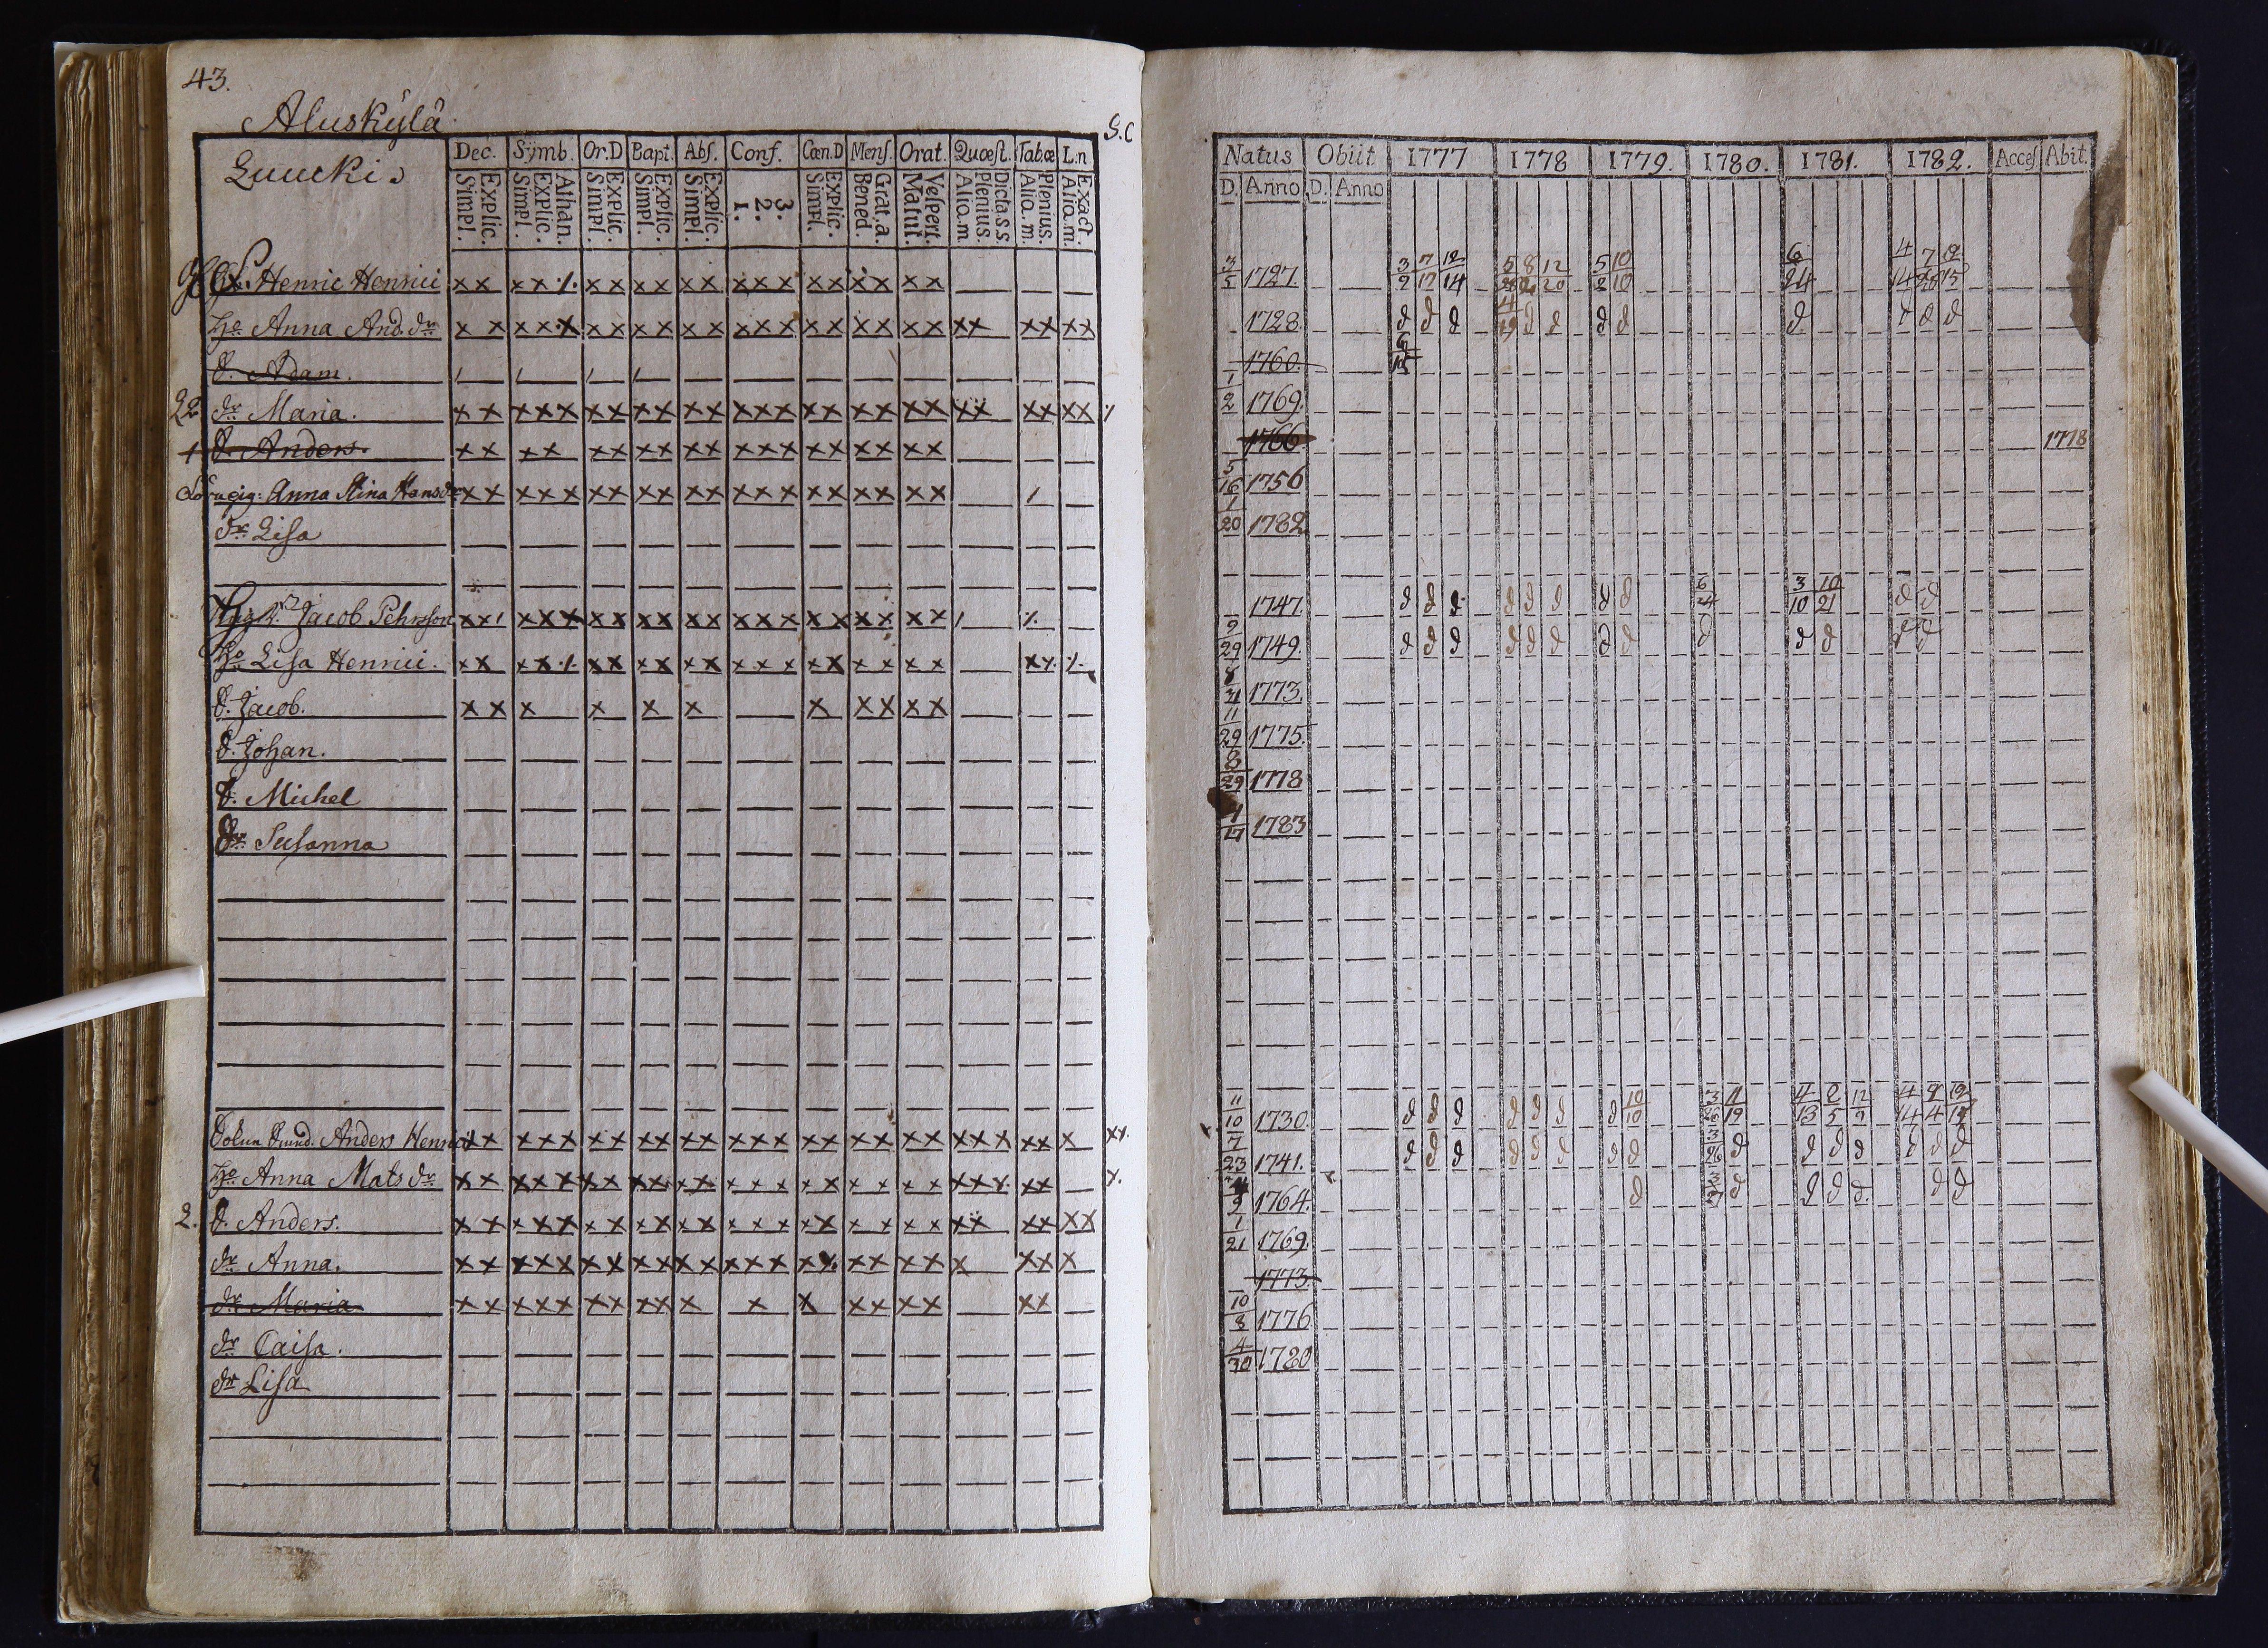 43.
Aluskÿlä
S.C
Luucki.
Dec. Sÿmb. Or.D Bapt. Abs. Conf. Cœn.D Mens. Orat. Quœst. Tabœ L.n
Explic. Simpl.
Athan. Explic. Simpl.
Explic. Simpl.
Explic. Simpl.
Explic. Simpl.
3. 2. 1.
Explic. Simpl.
Grat.a. Bened.
Vespert. Matut.
Dicta.s.s Plenius. Alio.m
Plenius. Alio.m.
Exact. Alio.m.
Henric Henrici xx xx xx xx xx xxx xx xx xx
Ho Anna And. dr xx xxx xx xx xx xxx xx xx xx xx xx xx
d. Adam.
22 dr Maria. xx xxx xx xx xx xxx xx xx xx xx xx xx
d. Anders. xx xx xx xx xx xxx xx xx xx
Anna Stina Hansdr xx xxx xx xx xx xxx xx xx xx
dr Lisa
Jacob Pehrsson xx xxx xx xx xx xxx xx xx xx
Ho Lisa Henrici. xx xx xx xx xx xxx xx xx xx
d. Jacob. xx x x x x x xx xx
d. Johan.
d. Michel
dr Susanna
Anders Henrici xx xxx xx xx xx xxx xx xx xx xxx xx x xx.
Ho Anna Mats dr xx xxx xx xx xx xxx xx xx xx xxx xx x.
2. d. Anders. xx xxx xx xx xx xxx xx xx xx xx xx xx
dr Anna. xx xxx xx xx xx xxx xx xx xx x xx x
dr Maria xx xxx xx xx x x x xx xx xx
dr Caisa.
dr Lisa
Natus Obiit 1777 1778 1779. 1780. 1781. 1782. Acces Abit.
D. Anno D. Anno
3/5 1727. 3/2 7/17 12/14 5/ 8/ 12/20 5/2 10/10 6/24 4/14 7/ 12/15
1728. d d d 4/19 d d d d d d d d
1760. 6/15
1/2 1769.
1766 1778
5/16 1756
1/20 1782
1747 d d d d d d d d 6/4 3/10 10/21 d d
9/29 1749. d d d d d d d d d d d d d
8/31 1773.
11/29 1775.
8/29 1778
4/17 1783
11/10 1730. d d d d d d d 10/10 3/26 11/19 4/13 2/5 12/9 4/14 9/4 12/
7/23 1741. d d d d d d d d 3/26 d d d d d d d
/9 1764. d 3/ d d d d. d d
1/21 1769.
1773.
10/8 1776
4/30 1780